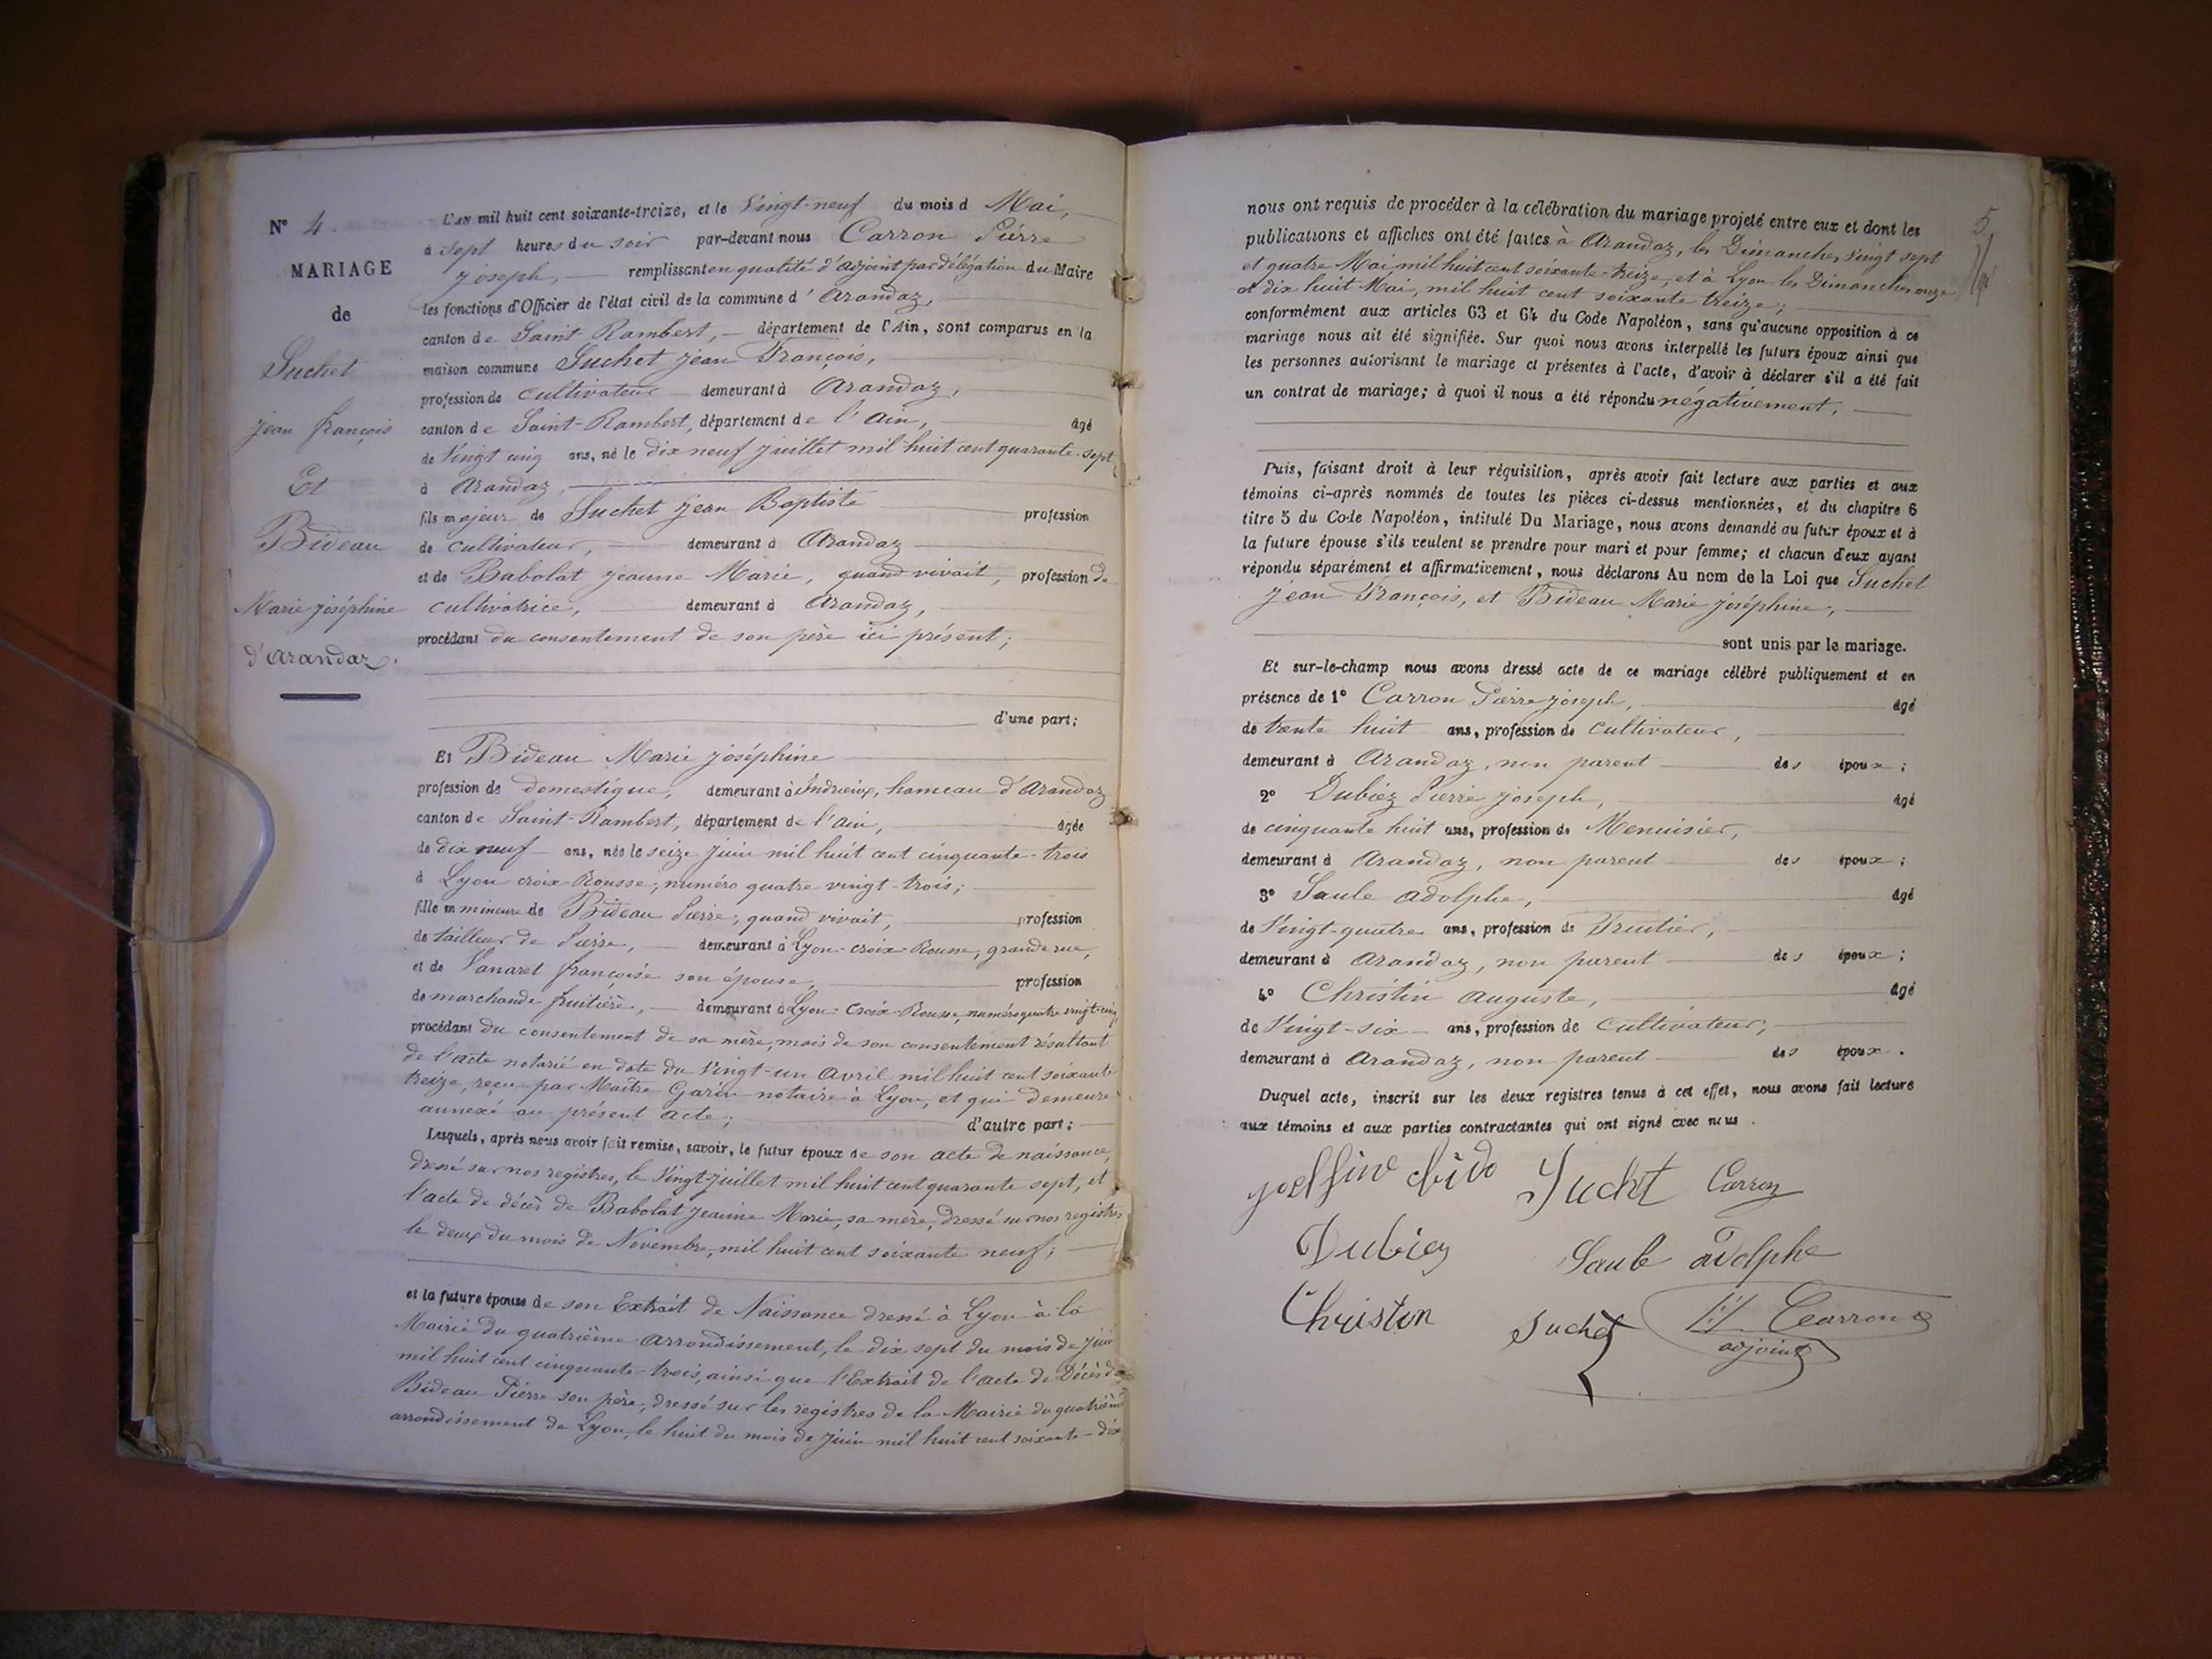 N° 4.
MARIAGE
de
Suchet
Jean françois
Et
Bideau
Marie joséphine
d'Arandaz.
L'AN mil huit cent soixante-treize, et le Vingt-neuf du mois d Mai,
à sept heures du soir par-devant nous Carron Pierre
Joseph, remplissant en qualité d'adjoint par délégation du Maire
les fonctions d'Officier de l'état civil de la commune d'Arandaz,
canton de Saint Rambert, département de l'Ain, sont comparus en la
maison commune Suchet Jean François,
profession de cultivateur demeurant à Arandaz,
canton de Saint-Rambert, département de l'ain, âgé
de Vingt cinq ans, né le dix neuf juillet mil huit cent quarante-sept
à Arandaz,
fils majeur de Suchet Jean Baptiste profession
de cultivateur, demeurant à Arandaz
et de Babolat Jeanne Marie, quand vivait, profession de
cultivatrice, demeurant à Arandaz,
procédant du consentement de son père ici présent;
d'une part;
Et Bideau Marie joséphine
profession de domestique, demeurant à Indrieux, hameau d'Arandaz
canton de Saint-Rambert, département de l'ain, âgée
de dix neuf ans, née le seize Juin mil huit cent cinquante-trois
à Lyon croix-Rousse, numéro quatre vingt-trois;
fille mineure de Bideau Pierre, quand vivait, profession
de tailleur de Pierre, demeurant à Lyon-croix-Rousse, grande rue,
et de Vanaret françoise son épouse, profession
de marchande fruitière, demeurant à Lyon-Croix-Rousse, numéro quatre vingt-cinq,
procédant du consentement de sa mère, mais de son consentement résultant
de l'acte notarié en date du Vingt-un Avril mil huit cent soixante
treize, reçu par Maître Garin notaire à Lyon, et qui demeure
annexé au présent acte; d'autre part;
Lesquels, après nous avoir fait remise, savoir, le futur époux de son acte de naissance,
dressé sur nos registres, le Vingt Juillet mil huit cent quarante sept, et
l'acte de décès de Babolat Jeanne Marie, sa mère, dressé sur nos registres
le deux du mois de Novembre, mil huit cent soixante neuf;
et la future épouse de son Extrait de Naissance dressé à Lyon à la
Mairie du quatrième arrondissement, le dix sept du mois de Juin
mil huit cent cinquante-trois, ainsi que l'Extrait de l'acte de Décès de
Bideau Pierre son père, dressé sur les registres de la Mairie du quatrième
arrondissement de Lyon, le huit du mois de Juin mil huit cent soixante-dix,
5
nous ont requis de procéder à la célébration du mariage projeté entre eux et dont les
publications et affiches ont été faites à Arandaz, les Dimanches Vingt sept
et quatre Mai mil huit cent soixante-treize, et à Lyon les Dimanches onze
et dix huit Mai, mil huit cent soixante treize;
conformément aux articles 63 et 64 du Code Napoléon, sans qu'aucune opposition à ce
mariage nous ait été signifiée. Sur quoi nous avons interpellé les futurs époux ainsi que
les personnes autorisant le mariage et présentes à l'acte, d'avoir à déclarer s'il a été fait
un contrat de mariage; à quoi il nous a été répondu négativement,
Puis, faisant droit à leur réquisition, après avoir fait lecture aux parties et aux
témoins ci-après nommés de toutes les pièces ci-dessus mentionnées, et du chapitre 6
titre 5 du Code Napoléon, intitulé Du Mariage, nous avons demandé au futur époux et à
la future épouse s'ils veulent se prendre pour mari et pour femme; et chacun d'eux ayant
répondu séparément et affirmativement, nous déclarons Au nom de la Loi que Suchet
Jean François, et Bideau Marie joséphine,
sont unis par le mariage.
Et sur-le-champ nous avons dressé acte de ce mariage célébré publiquement et en
présence de 1° Carron Pierre joseph, âgé
de trente huit ans, profession de cultivateur,
demeurant à Arandaz, non parent des époux;
2° Dubiez Pierre joseph, âgé
de cinquante huit ans, profession de Menuisier,
demeurant à Arandaz, non parent des époux;
3° Saule Adolphe, âgé
de Vingt-quatre ans, profession de Fruitier,
demeurant à Arandaz, non parent des époux;
4° Christin Auguste, âgé
de Vingt-six ans, profession de cultivateur,
demeurant à Arandaz, non parent des époux.
Duquel acte, inscrit sur les deux registres tenus à cet effet, nous avons fait lecture
aux témoins et aux parties contractantes qui ont signé avec nous.
Suchet Carron
Dubiez Saule adolphe
Christin Suchet Carron
adjoint